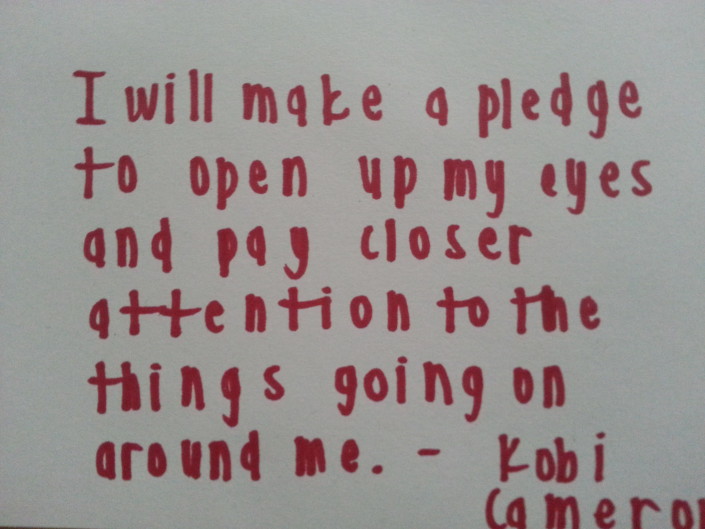 I will make a pledge
to open up my eyes
and pay closer
attention to the
things going on
around me. - Kobi
Cameron